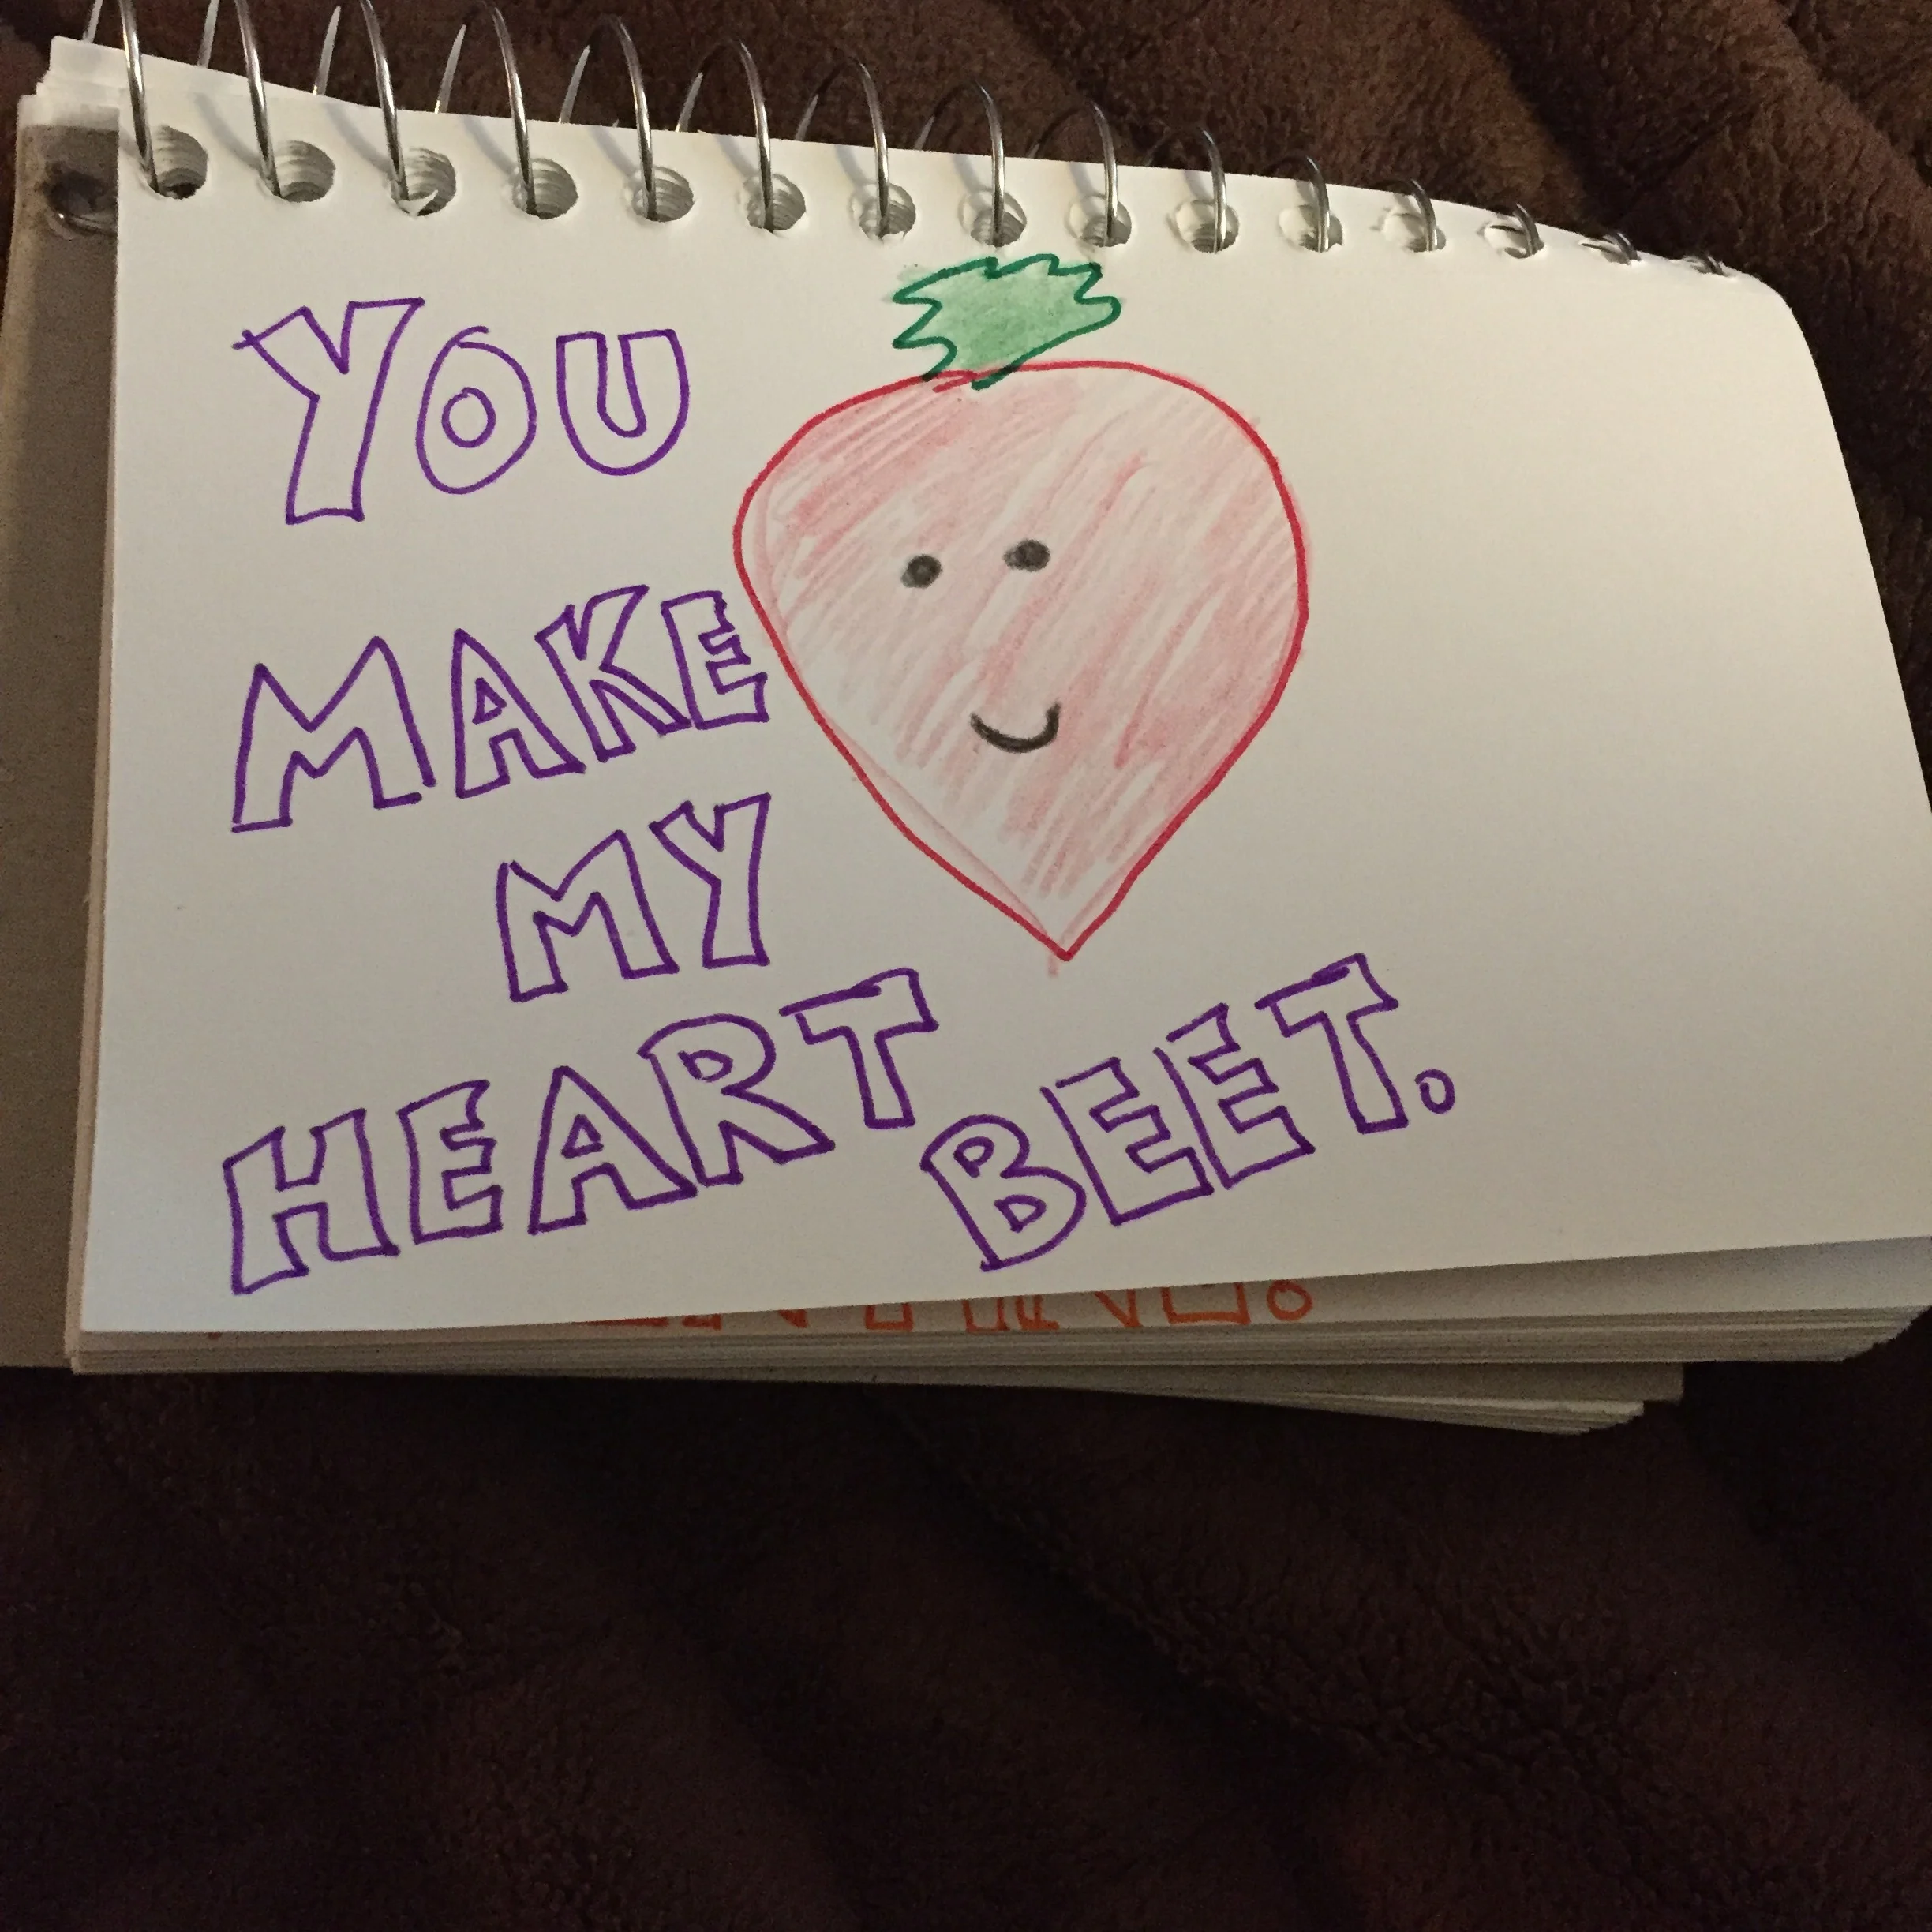 YOU
MAKE
MY
HEART BEET.